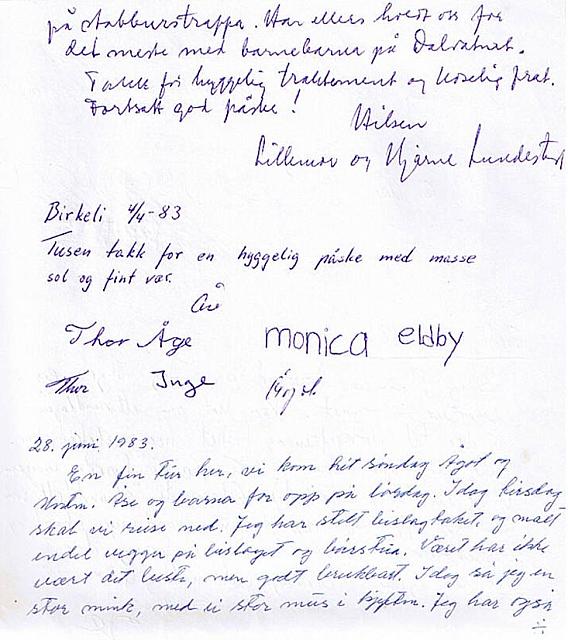 på stabburstrappa. Har ellers hvert oss for
det meste med barnebarna på Dalvatnet.
Takk for hyggelig traktement og koselig prat.
Fortsatt god påske!
Hilsen
Lillemor og Hjarne Lundestad
Birkeli 4/4-83
Tusen takk for en hyggelig påske med masse
sol og fint vær.
Thor Åge monica eldby
Thor Inge
28. juni 1983.
En fin tur her, vi kom hit søndag Ågot og
Åse og barna for opp på lørdag. Idag tirsdag
skal vi reise ned. Jeg har stelt bislagtaket, og malt
endel vegger på bislaget og Været har ikke
vært det beste, men godt brukbart. Idag så jeg en
stor mink, med ei stor mus i kjeften. Jeg har også